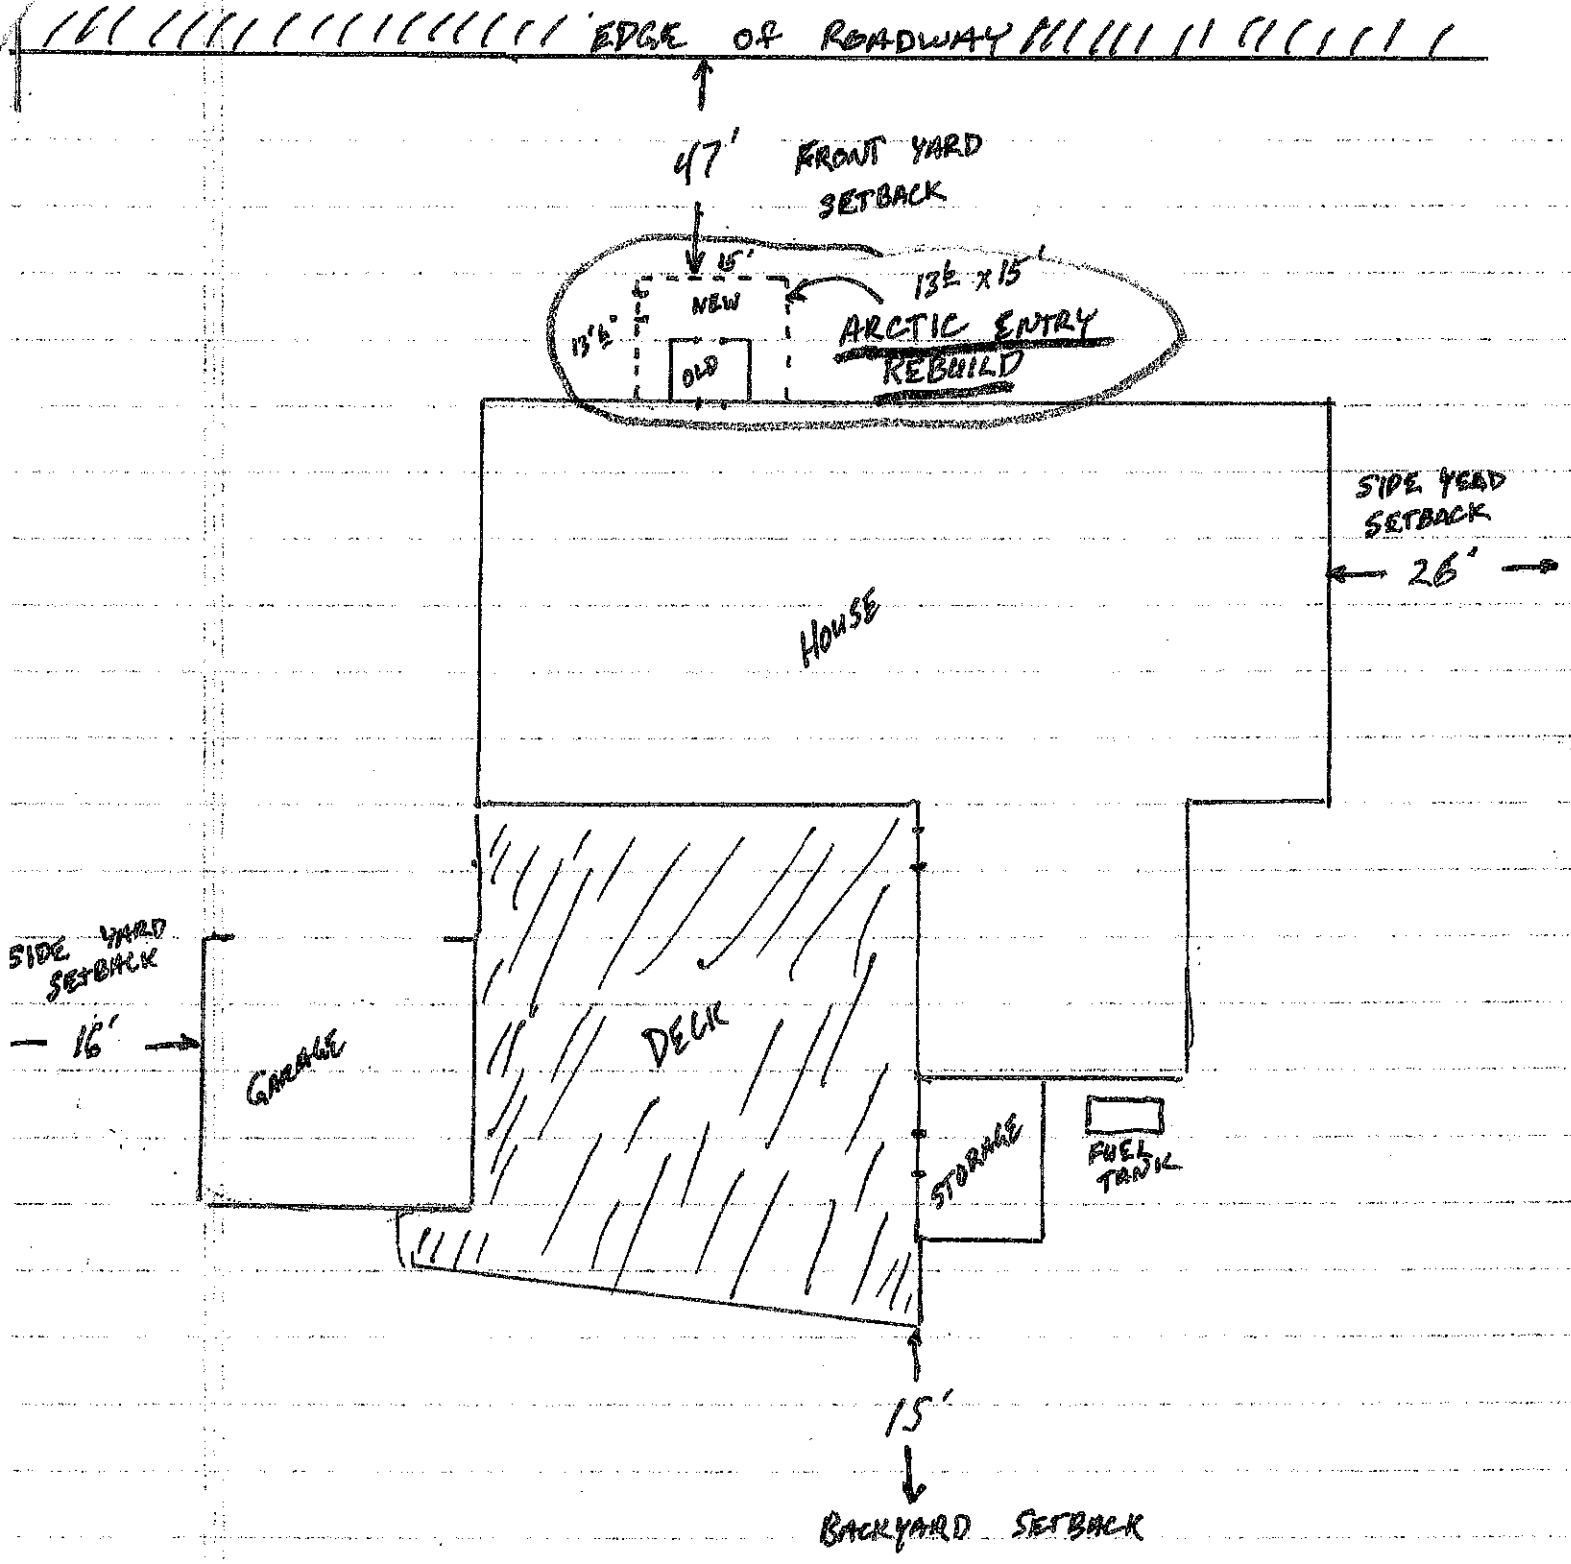 EDGE OF ROADWAY
47'
FRONT YARD
SETBACK
15'
NEW
13'6"
OLD
13 6 x 15'
ARCTIC ENTRY
REBUILD
SIDE YEAD
SETBACK
26'
HOUSE
SIDE YARD
SETBACK
16'
GARAGE
DECK
STORAGE
FUEL
TANK
15'
BACKYARD SETBACK